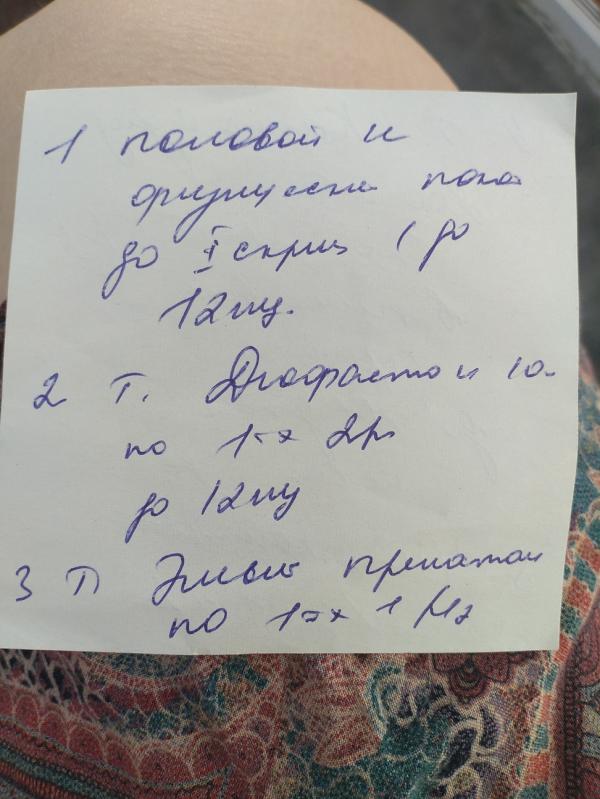 1 половой и
физический покой
до I скрин (до
12 нед.
2 Т. Дюфастон 10
по 1т x 2р
до 12 нед
3 Т) Элевит пренатал
по 1т x 1